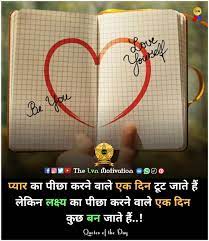 Love
Yourself
Be You
The Lvn Motivation
प्यार का पीछा करने वाले एक दिन टूट जाते हैं
लेकिन लक्ष्य का पीछा करने वाले एक दिन
कुछ बन जाते हैं..!
Quotes of the Day